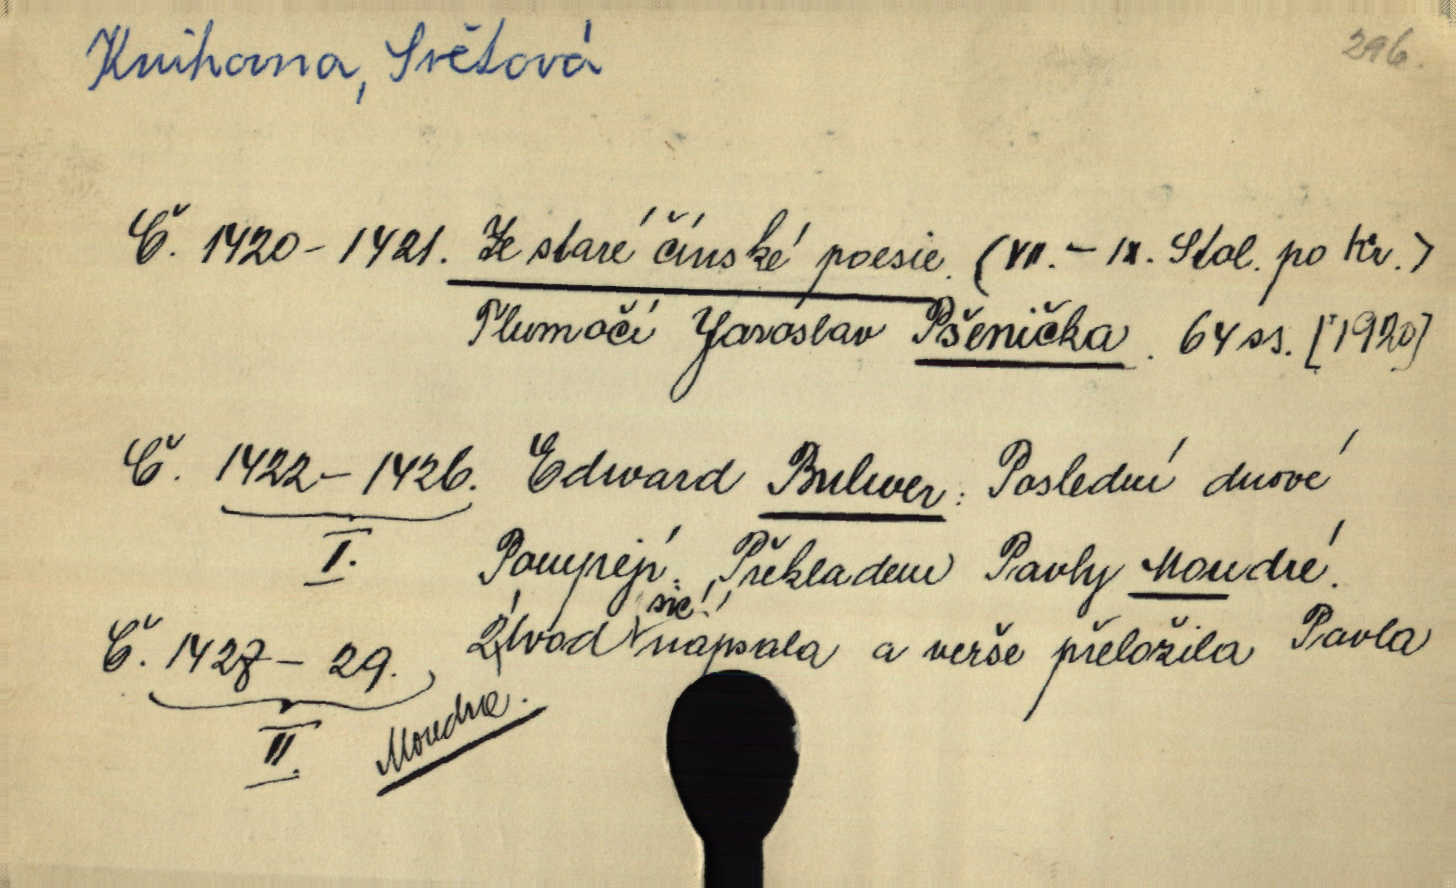 Knihovna, Světová
296.
Č. 1420-1421. Ze staré čínské poesie. (VII. - IX. Stol. po Kr.)
Tlumočí Jaroslav Pšenička. 64 ss. [1920]
Č. 1422-1426. Edward Bulwer: Poslední dnové
I.
Pompejí. Překladem Pavly Moudré.
sic!
Č. 1427-29. Úvod napsala a verše přeložila Pavla
II.
Moudrá.